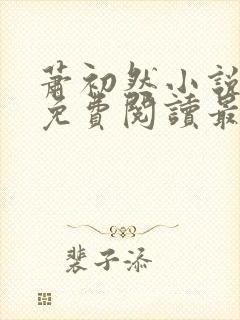 蕭初然小說
免費閱讀最
裴子添